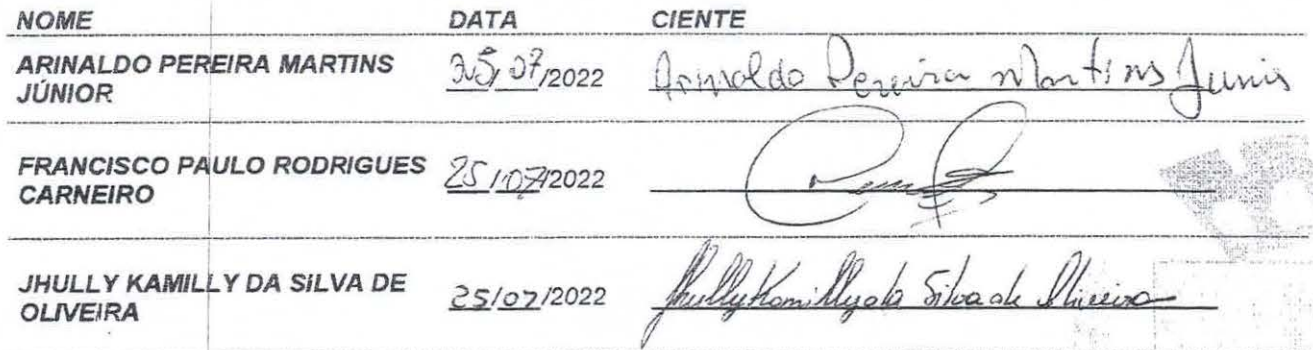 NOME DATA CIENTE
ARINALDO PEREIRA MARTINS
JÚNIOR
25/07/2022 Arinaldo Pereira Martins Junio
FRANCISCO PAULO RODRIGUES
CARNEIRO
25/07/2022
JHULLY KAMILLY DA SILVA DE
OLIVEIRA
25/07/2022 Jhully Kamilly da Silva de Oliveira